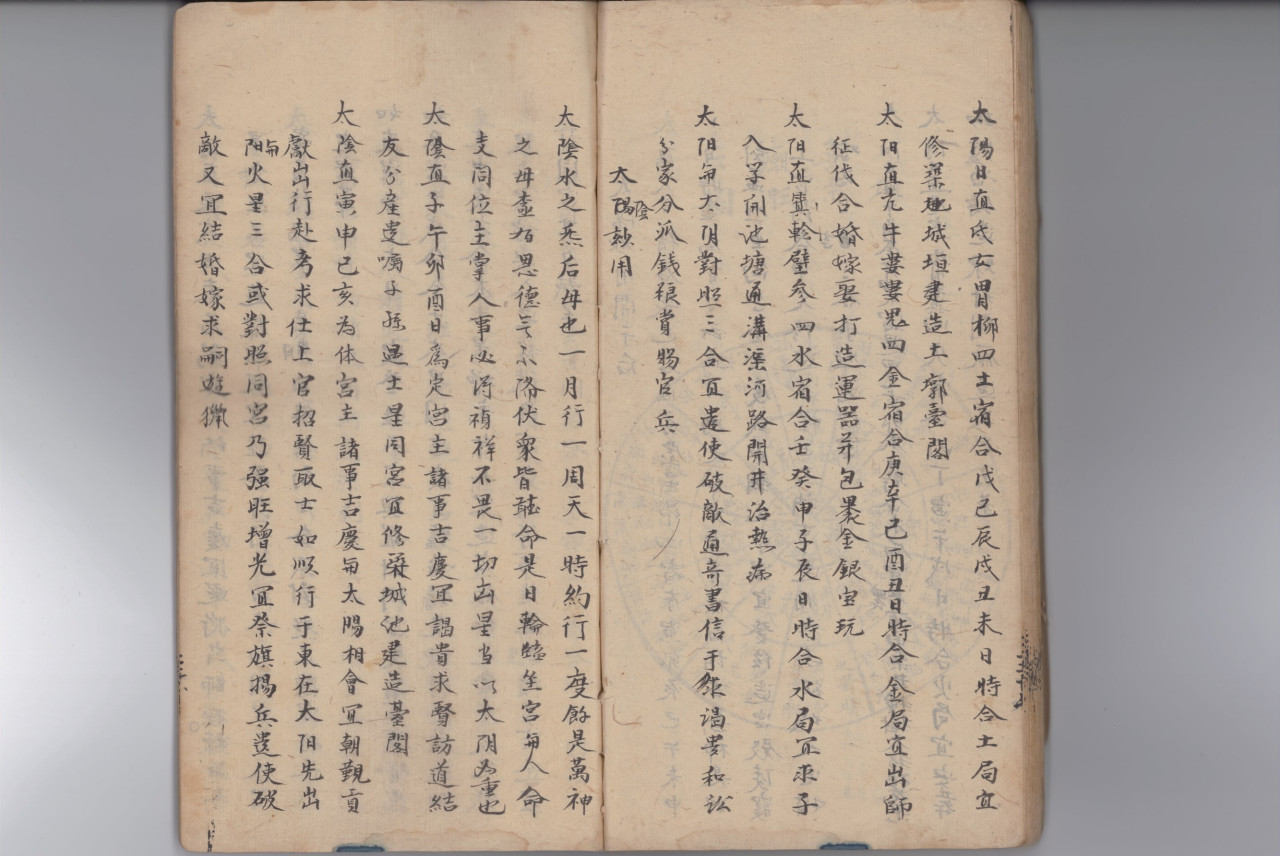 太陽日直氐女胃柳四土宿合戊己辰戌丑未日時合土局宜
修築地城垣建造土郭臺閣
太阳直亢牛婁婁鬼四金宿合庚辛己酉丑日時合金局宜出師
征伐合婚嫁娶打造運器并包裹金銀宝玩
太阳直箕軫壁参四水宿合壬癸申子辰日時合水局宜求子
入学開池塘通溝渠河路開井治熱病
太阳與太阴對照三合宜遣使破敵通奇書信干求謁貴和訟
分家分派錢粮賞賜官兵
太陽陰玅用
太陰水之蒸后母也一月行一周天一時約行一度餘是萬神
之母壺有恩德無不降伏衆皆聽命是日輪臨笙宮與人命
支同位主掌人事必得禎祥不畏一切凶星当以太阴为重也
太陰直子午卯酉日爲定宮主諸事吉慶宜謁貴求賢訪道結
友分産遗嘱子孫遇土星同宮宜修築城池建造臺閣
太陰直寅申巳亥為体宮主諸事吉慶與太陽相會宜朝覲貢
獻出行赴考求仕上官招賢取士如順行于東在太阳先出
與阳火星三合或對照同宮乃强旺增光宜祭旗揚兵遣使破
敵又宜結婚嫁求嗣遊獵